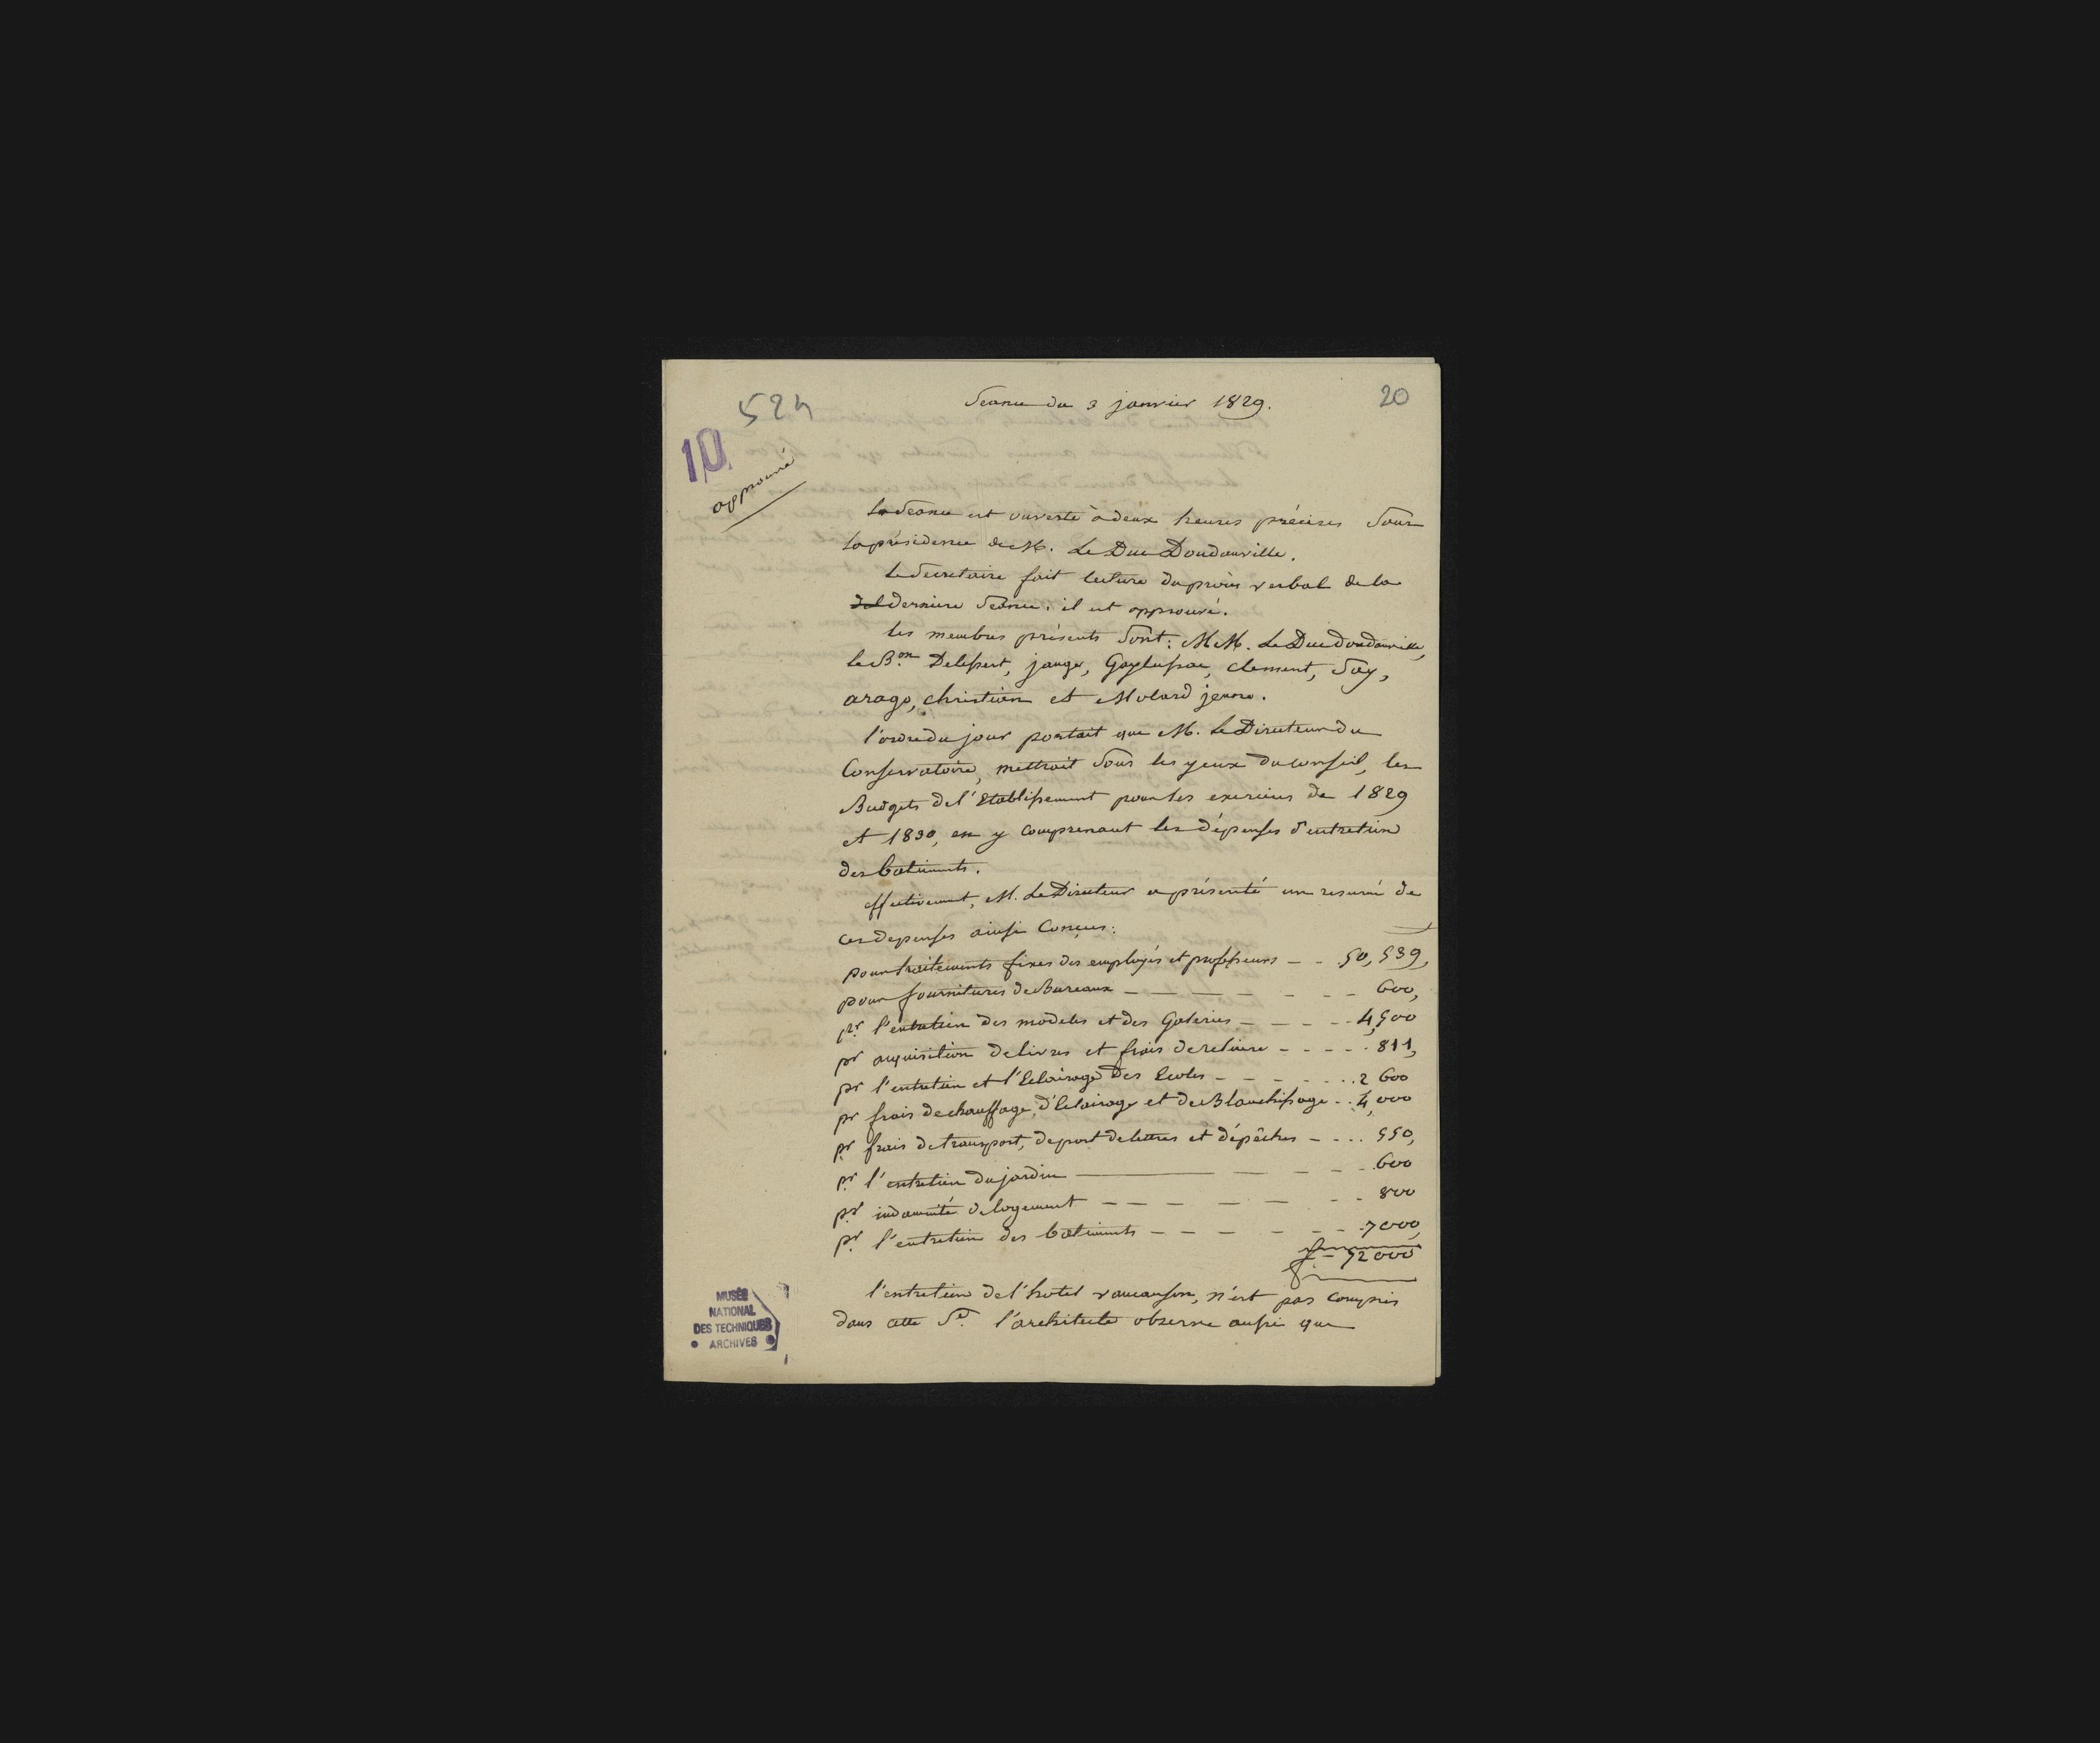 Seance du 3 janvier 1829.
20
524
10
approuvé
la Seance est ouverte à deux heures précises Sous
la présidence de M. Le Duc Doudauville.
le Secretaire fait lecture du procès verbal de la
derniere Seance: il est approuvé.
les membres présents Sont: MM. Le Duc doudauville,
le B.on Delessert, jauge, Gaylussac, Clement, Say,
arago, christian et Molard jeune.
l'ordre du jour portait que M. Le Directeur du
Conservatoire, mettrait Sous les yeux du conseil, les
Budgets de l'Etablissement pour les exercices de 1829
et 1830, en y comprenant les dépenses d'entretien
des batiments.
effectivement, M. Le Directeur a présenté un resumé de
ces depenses ainsi Conçus:
pour traitements fixes des employés et professeurs — - 50,539,
pour fournitures de Bureaux — — — — - - - 600,
pr. l'entretien des modeles et des Galeries — - - - - 4,500
pr acquisition de livres et frais de reliure - - - - - 811,
pr l'entretien et l'Eclairage des Ecoles - - - - . . . 2 600
pr frais de chauffage, d'Eclairage et de Blanchissage - . . 4,000
pr. frais de transport, de port de lettres et dépêches — - . . . 550,
pr. l'entretien du jardin ——— — - - - - 600
pr. indemnité de logement — — — — — - - 800
pr. l'entretien des batiments — — — — - - - 7000,
f. - 72000
l'entretien de l'hotel vaucanson, n'est pas compris
dans cette Se. l'architecte observe aussi que
MUSÉE
NATIONAL
DES TECHNIQUES
• ARCHIVES •